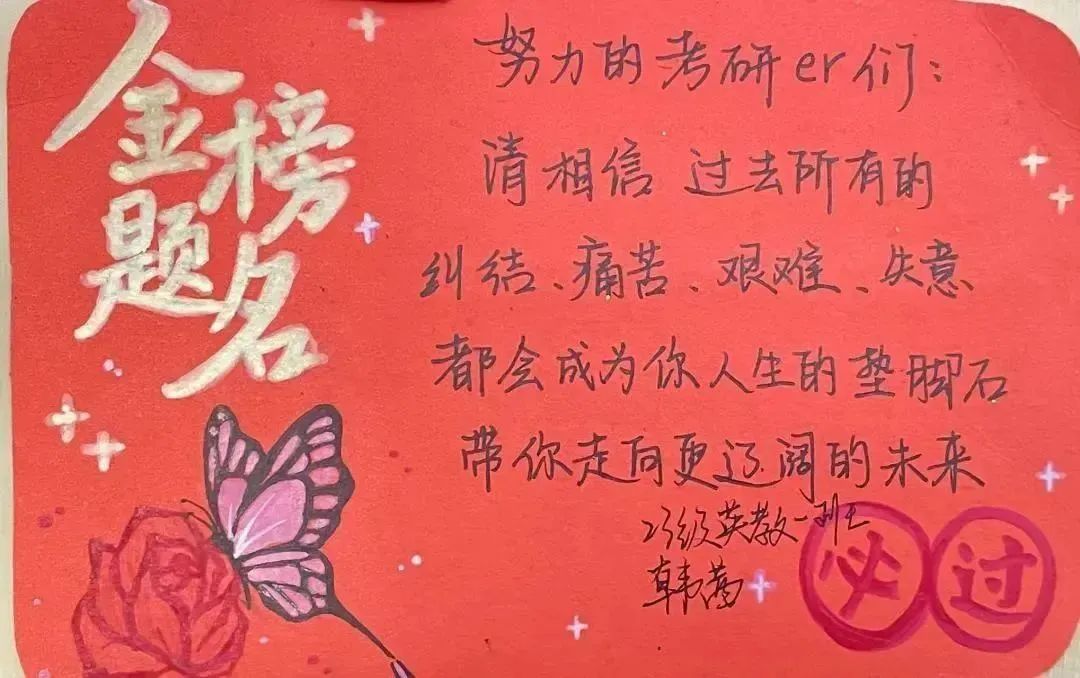 金榜
题名
努力的考研er们:
清相信 过去所有的
纠结、痛苦、艰难、失意
都会成为你人生的垫脚石
带你走向更辽阔的未来
23级英教一班
韩茜
必过